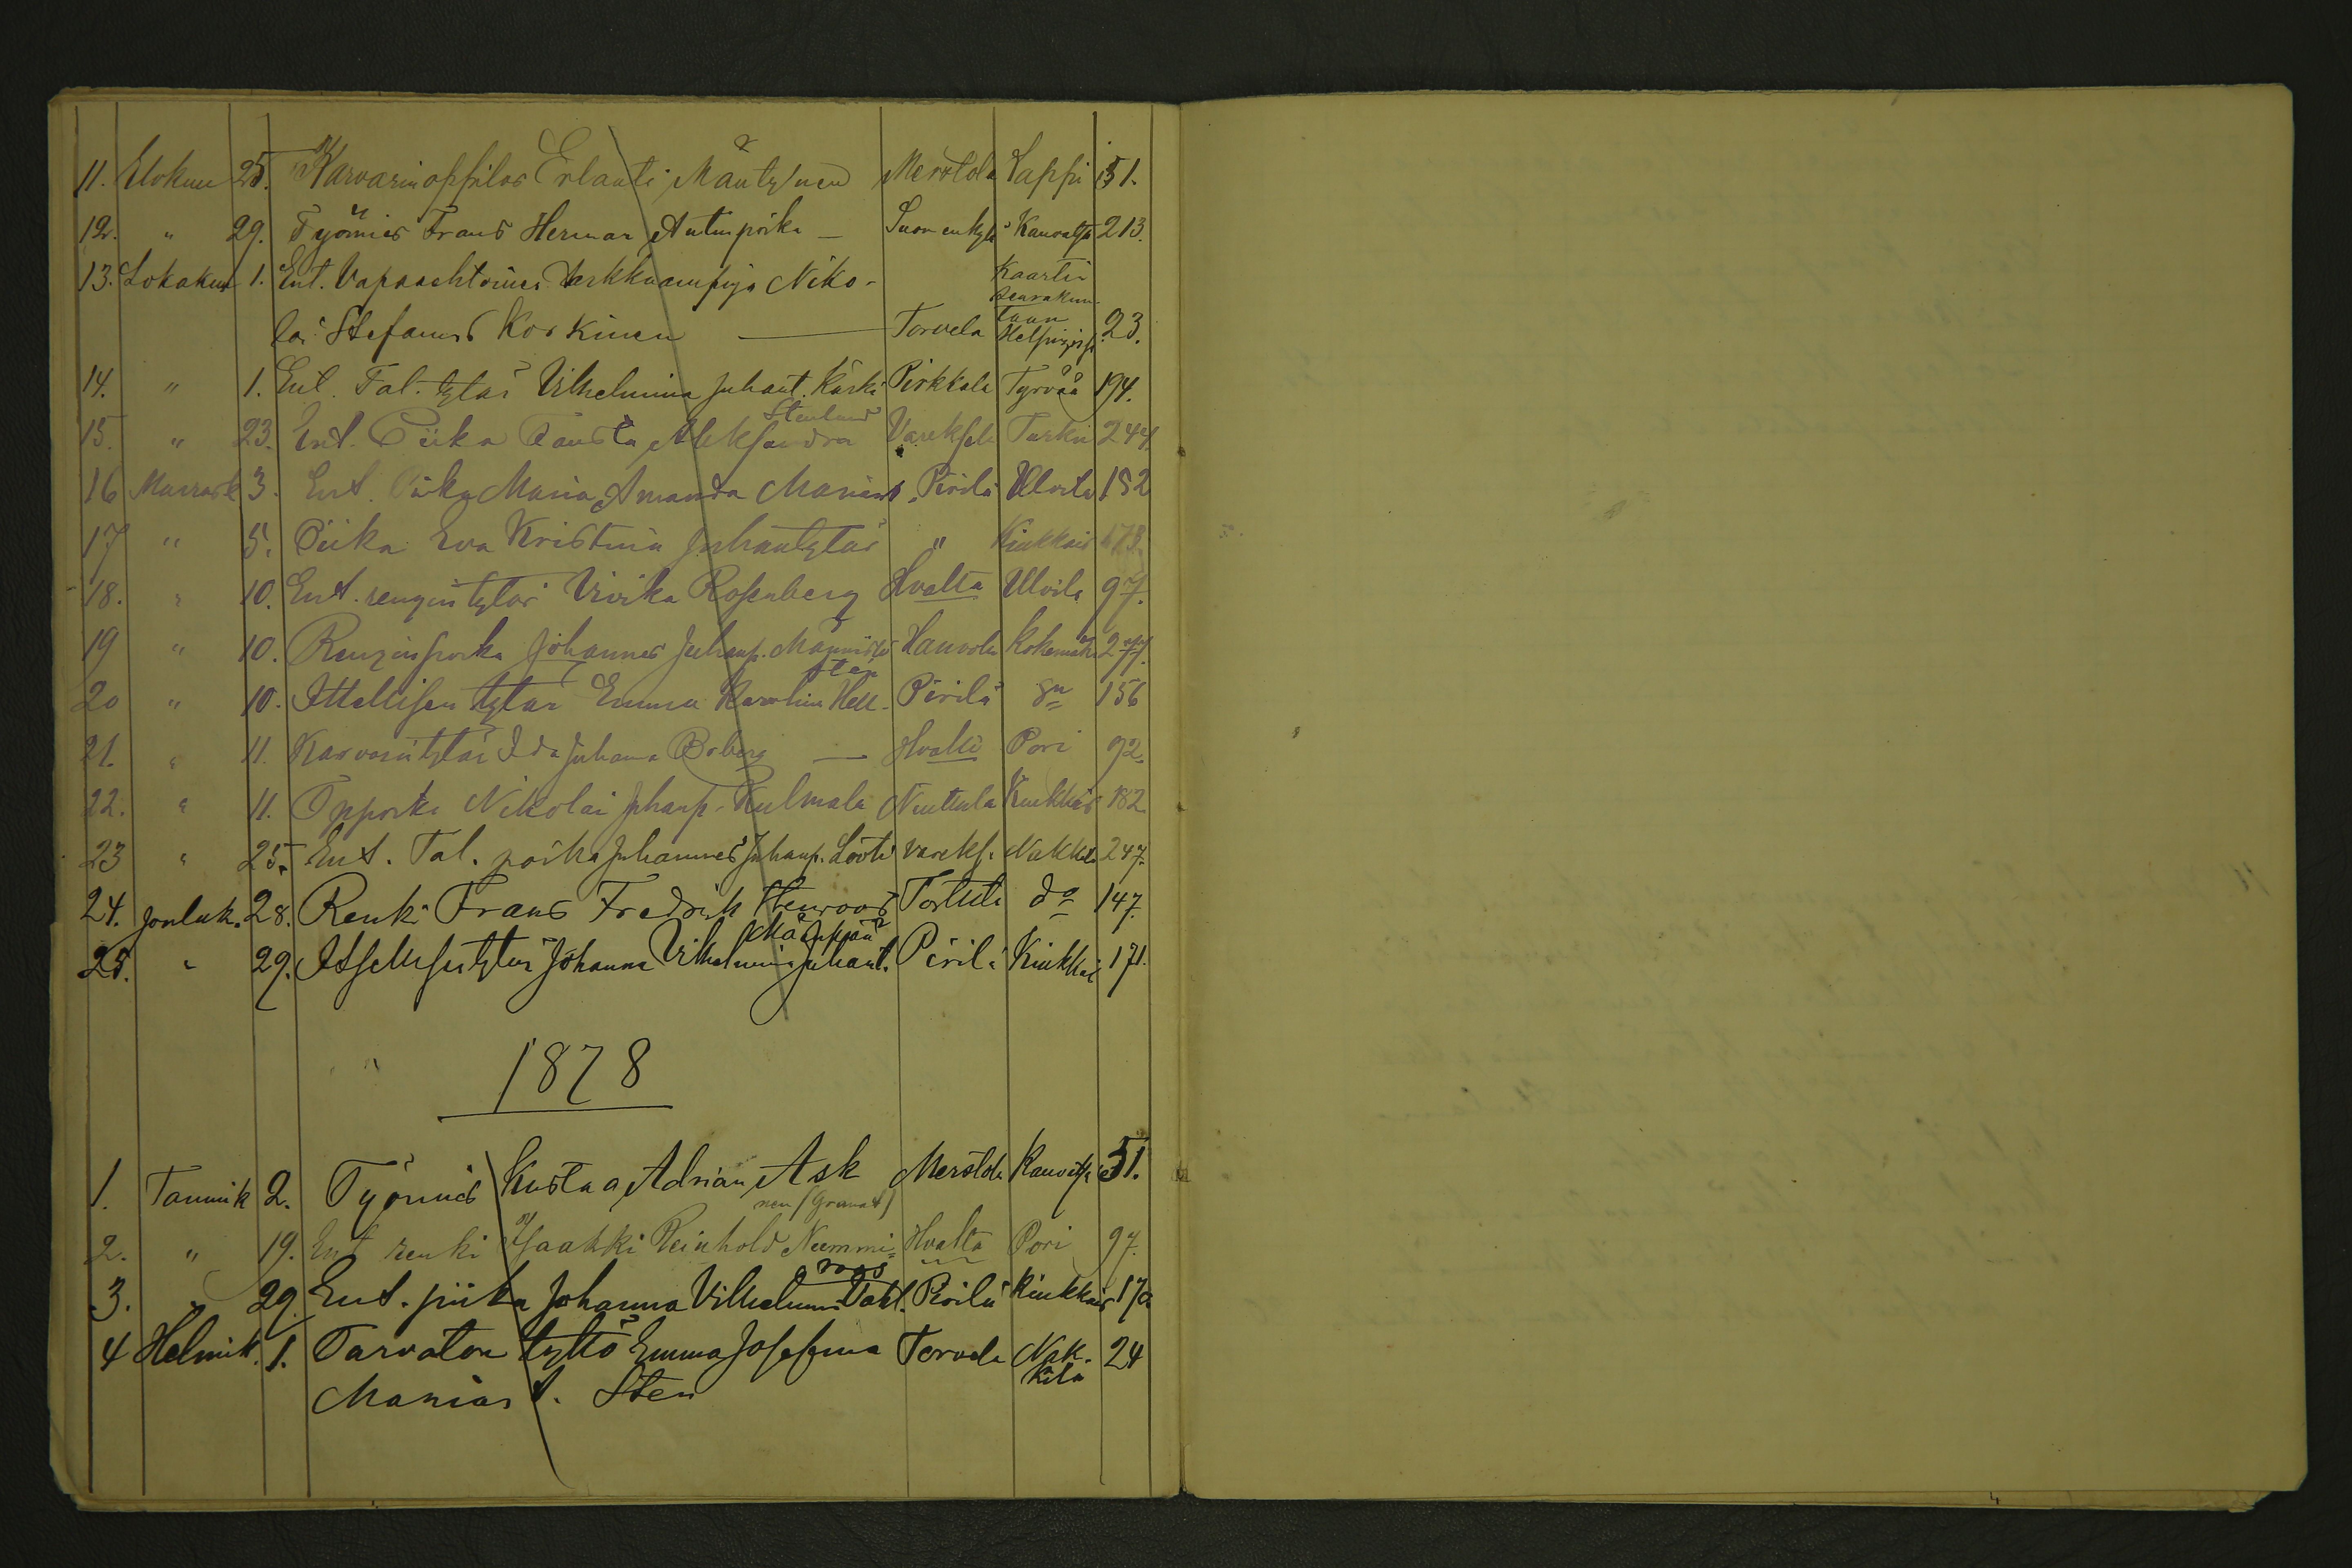 11. Elokuu 25. Karvarinoppilas Erlanti Mäntynen Merstola Lappi 51.
12. " 29. Työmies Frans Herman Antinpoika — Suomenkylä Kauvatsa 213.
13. Lokakuu 1. Ent. Vapaaehtoinen tarkkaampuja Niko-
Kaartin seurakun-
lai Stefanus Korkinen — Torvela taan Helsingiss. 23.
14. " 1. Ent. Tal. tytär Vilhelmina Juhant. Kärki Pirkkala Tyrvää 194.
Stenlund
15. " 23. Ent. Piika Fausta Aleksandra Vareksela Turku 244.
16 Marrask 3. Ent. Piika Maria Amanda Mariant. Pirilä Ulvila 152
17 " 5. Piika Eva Kristina Juhantytär " Kiukkais 173.
18. " 10. Ent. rengin tytär Viivika Rosenberg Hvalta Ulvila 97.
19 " 10. Rengin poika Johannes Juhanp. Männistö Hanvola Kokemäki 277.
sten
20 " 10. Ittellisen tytär Emma Karolina Hell- Pirilä dn 156
21. " 11. Karvarin tytär Ida Juhana Boberg — Hvalta Pori 92.
22. " 11. Nikolai Juhanp. Kulmala Nuttula Kiukkais 182
23 " 25. Ent. Tal. poika Juhannes Juhanp. Vareks. Nakkila 247.
24. Jouluk. 28. Renki Frans Fredrik Henroos do 147.
25. " 29. Itsellisen tytär Johanna Vilhelmina Juhant. Pirilä Kiukkai 171.
1878
1. Tammik 2. Työmies Kustaa Adrian Ask Merstola Kauvatsa 51.
nen (Granat)
2. " 19. Ent renki Jaakki Reinhold Niemmi- Hvalta Pori 97.
roos
3. " 29. Ent. piika Johanna Vilhelmina Dahl. Pirilä Kiukkais 170
4 Helmik. 1. Tarvaton tyttö Emma Josefina Torvela Nak- 24
kila
Mariant. Sten